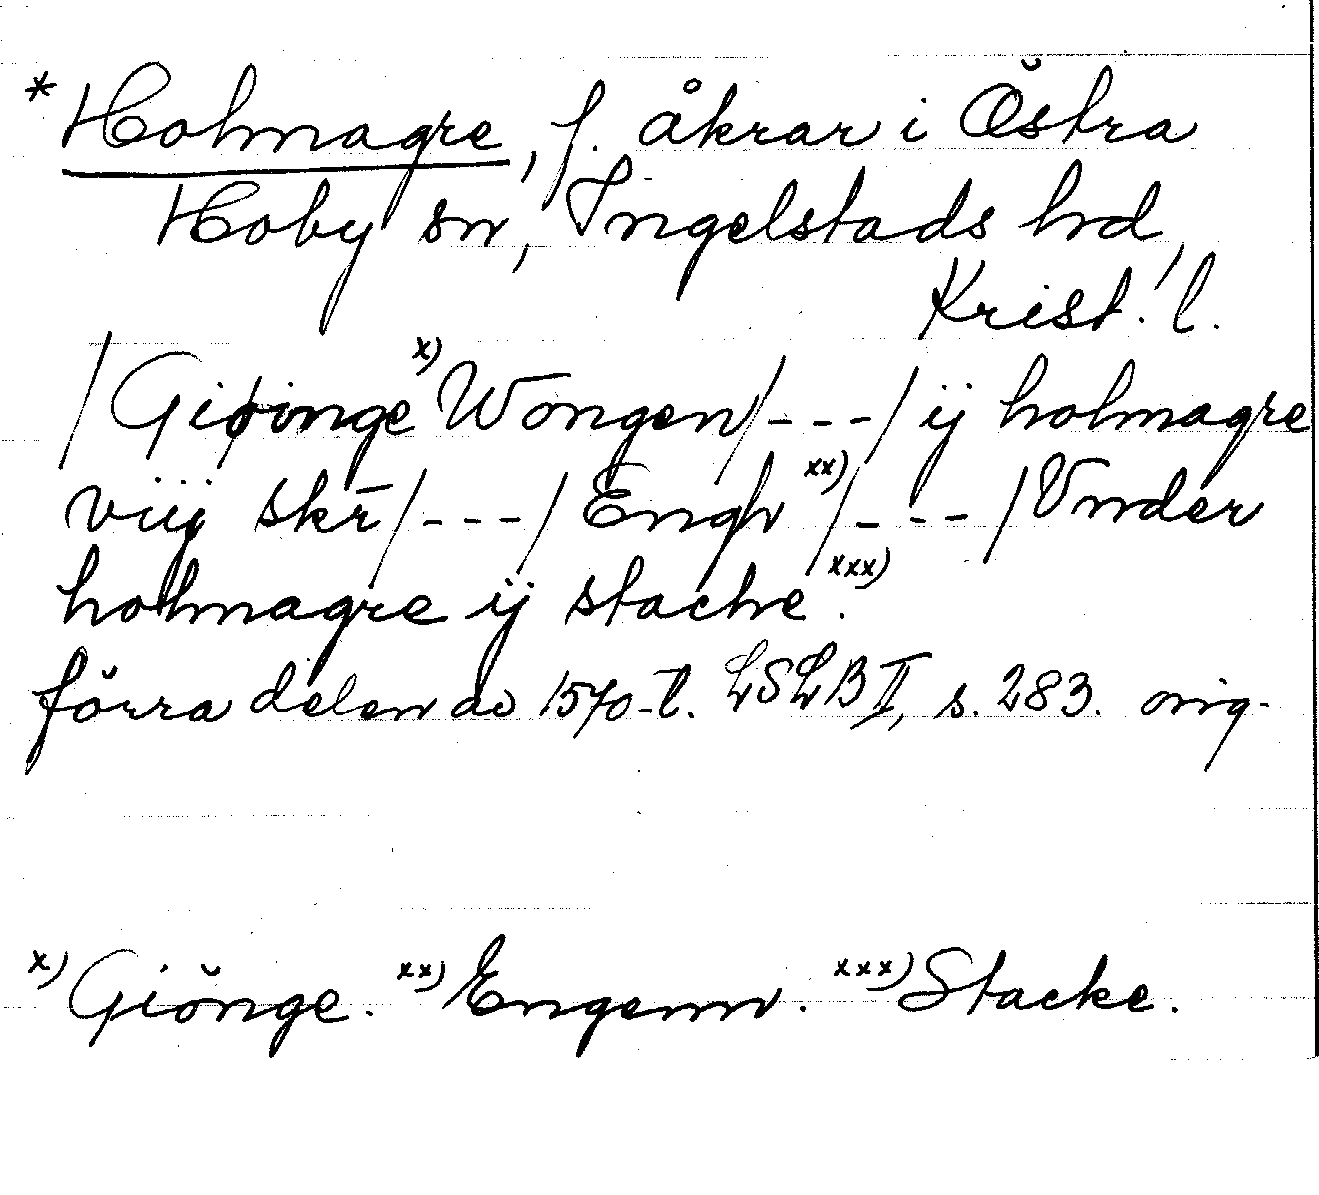 * Holmagre, f. åkrar i Östra
Hoby sn, Ingelstads hd,
Krist. l.
/Giøinge x) Wongen/---/ ij holmagre
viij skr̄/---/Engh xx)/---/Vnder
holmagre ij stacke xxx).
förra delen av 1570-t. LSLB II, s. 283. orig.
x) Giönge. xx) Engenn. xxx) Stacke.